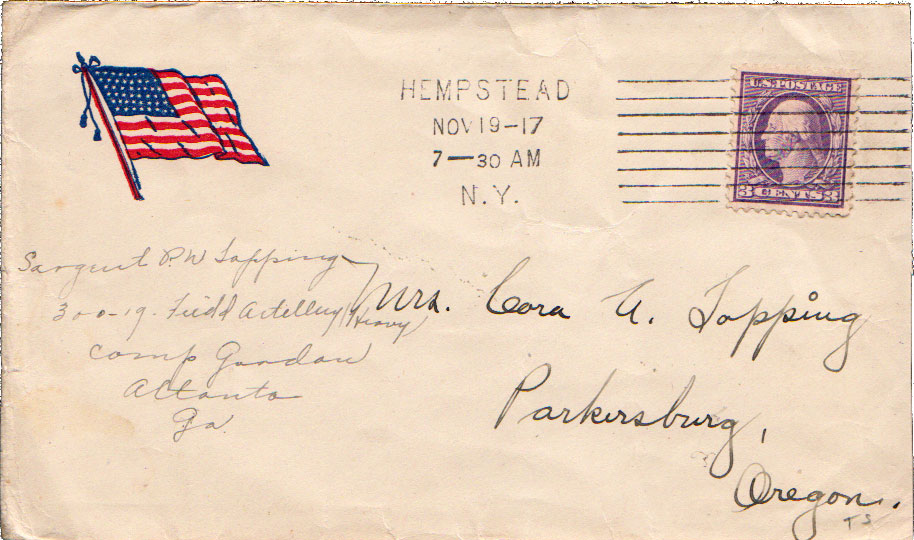 HEMPSTEAD
NOV 19-17
7-30 AM
N.Y.
U.S. POSTAGE
3 CENTS 3
Sargent P.W. Topping
300-19. Field Artellery (Heavy)
Camp Gordon
Atlanta
Ga
Mrs. Cora A. Topping
Parkersburg,
Oregon.
TS